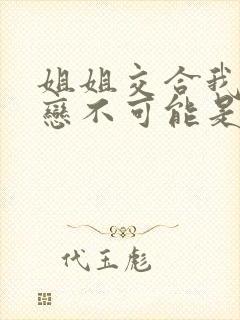 姐姐交合我
戀不可能是
代玉彪